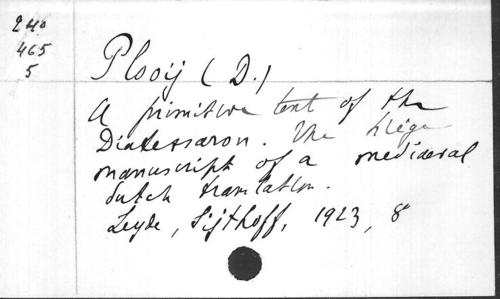 240
465
5
Plooij (D.)
A primitive text of the
Diatessaron. The Liège
manuscript of a mediaeval
dutch translation.
Leyde, Sijthoff, 1923, 8